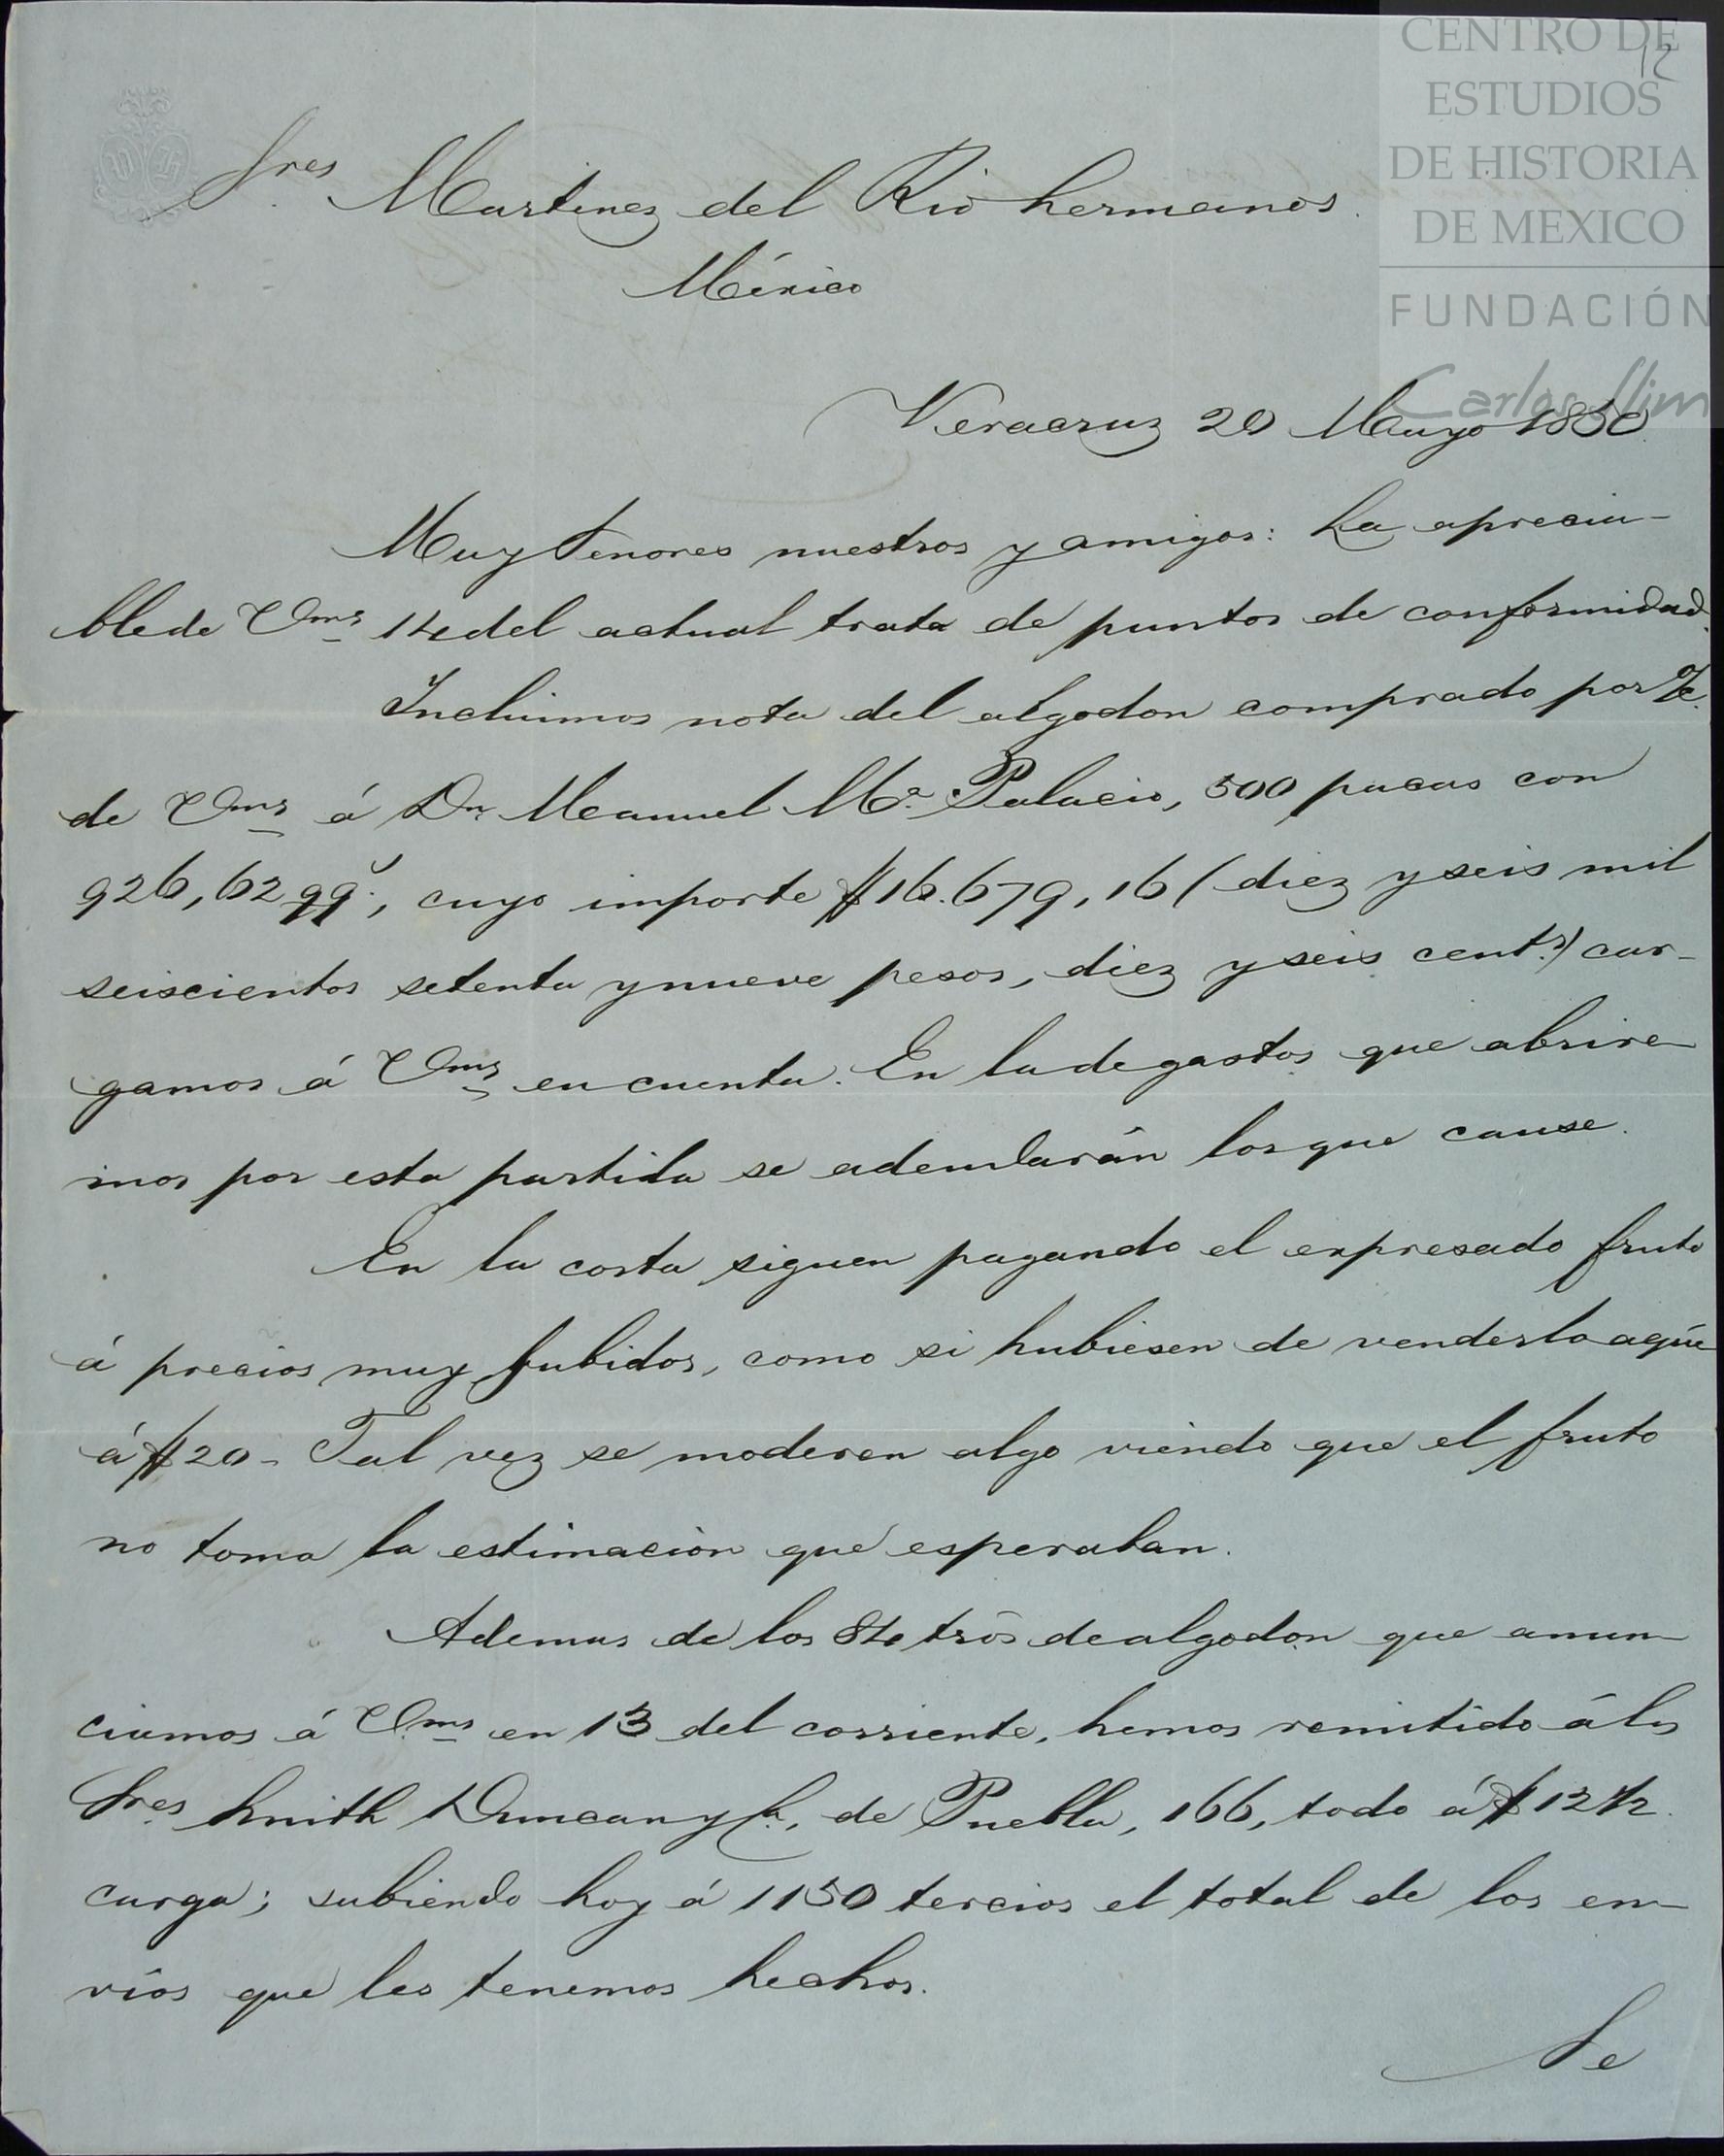 CENTRO DE
ESTUDIOS
DE HISTORIA
DE MEXICO
FUNDACIÓN
Carlos Slim
12
Sres. Martinez del Rio hermanos.
México
Veracruz 20 Mayo 1850.
Muy Senores nuestros y amigos: La aprecia-
ble de Vms 14 del actual trata de puntos de conformidad.
Incluimos nota del algodon comprado por %c.
de Vms á Dn. Manuel Ma. Palacio, 500 pacas con
926,62 qqs., cuyo importe $16.679,16 (diez y seis mil
seiscientos setenta y nueve pesos, diez y seis cents.) car-
gamos á Vms en cuenta. En la de gastos que abrire-
mos por esta partida se adeudarán los que cause.
En la costa siguen pagando el expresado fruto
á precios muy subidos, como si hubiesen de venderlo aqui
á $20 - Tal vez se moderen algo viendo que el fruto
no toma la estimación que esperaban.
Ademas de los 84 trõs de algodon que anun-
ciamos á Vms en 13 del corriente, hemos remitido á los
Sres. Smith Duncan y Ca., de Puebla, 166, todo á $12 1/2
carga; subiendo hoy á 1150 tercios el total de los en-
víos que les tenemos hechos.
Se